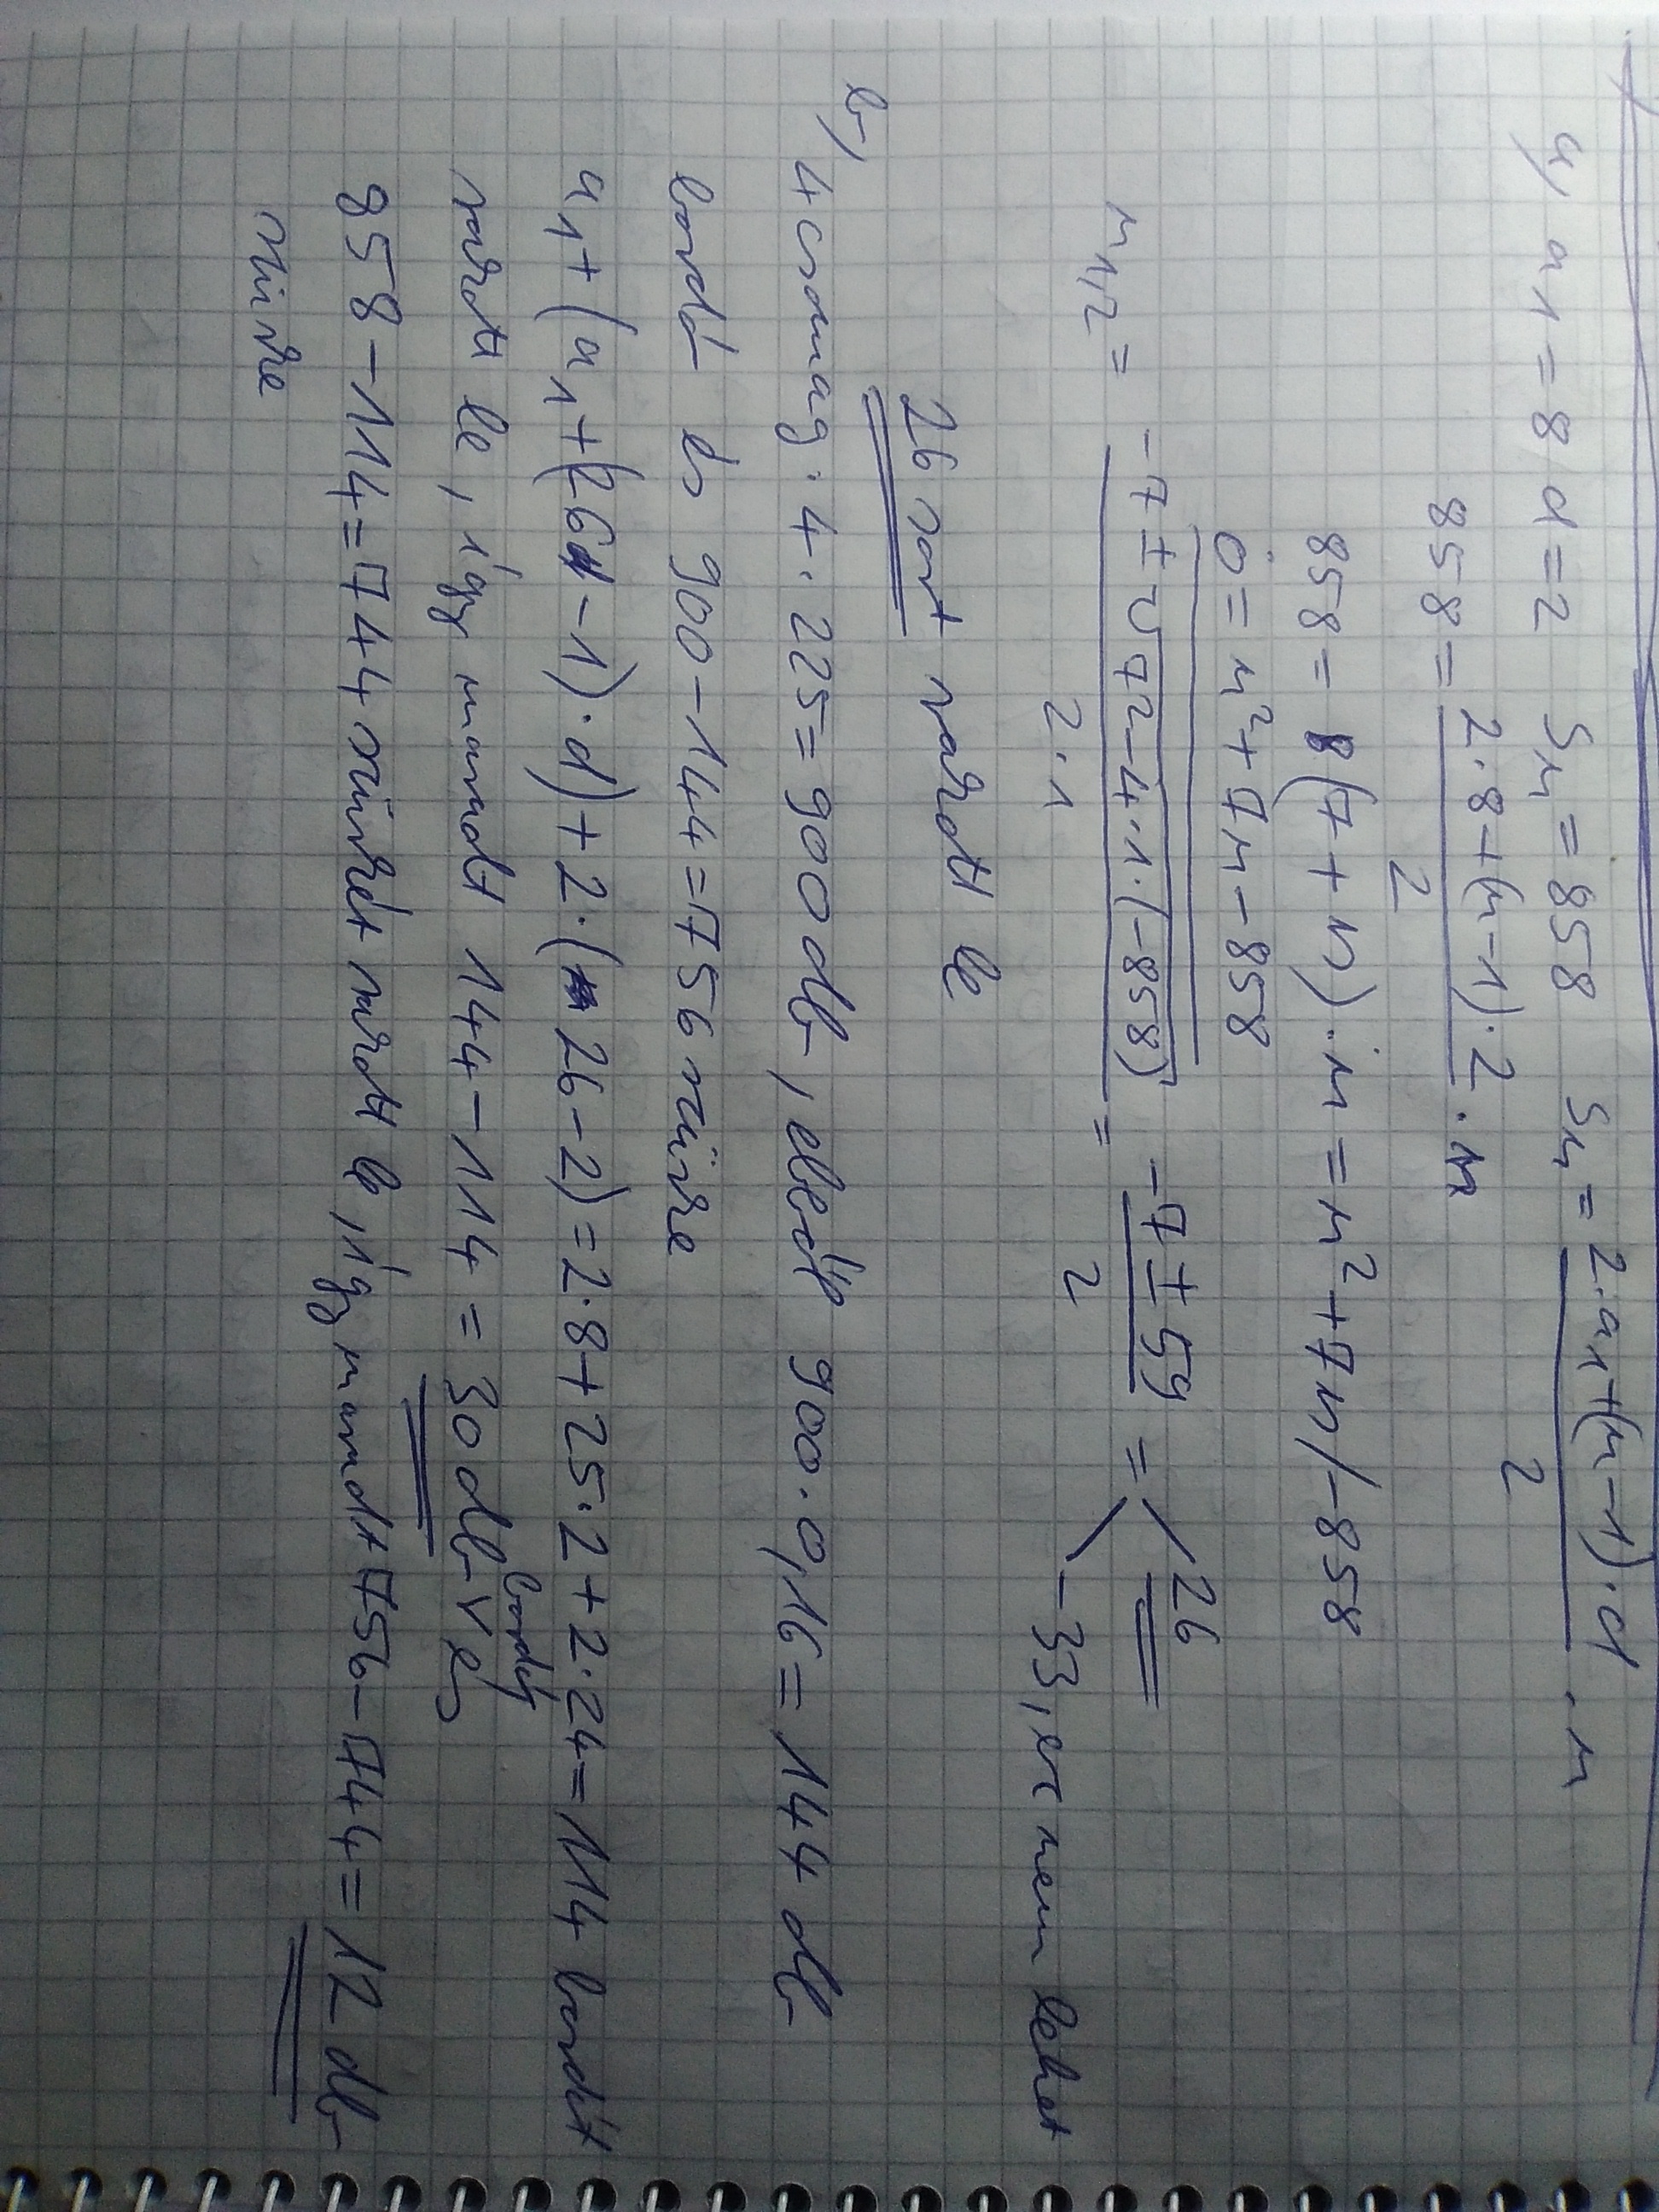 a, a1 = 8 d = 2 Sn = 858 Sn = (2·a1+(n-1)·d)/2 · n
858 = (2·8+(n-1)·2)/2 · n
858 = (7+n)·n = n²+7n /-858
0 = n²+7n-858
n1,2 = (-7±√(7²-4·1·(-858)))/(2·1) = (-7±59)/2 = 26
-33, ez nem lehet
26 sort rakott le
b, 4 csomag · 4 · 225 = 900 db, ebből 900·0,16 = 144 db
bordó és 900-144 = 756 szürke
a1+(a1+(26-1)·d)+2·(26-2) = 2·8+25·2+2·24 = 114 bordót
rakott le, így maradt 144-114 = 30 db bordó és
858-114 = 744 szürkét rakott le, így maradt 756-744 = 12 db
szürke